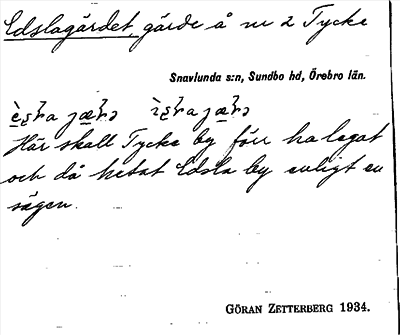 Edslagärdet, gärde å nr 2 Tycke
Snavlunda s:n, Sundbo hd, Örebro län.
Här skall Tycke by förr ha legat
och då hetat Edsla by enligt en
sägen.
GÖRAN ZETTERBERG 1934.